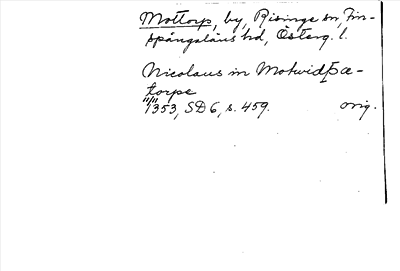 Mottorp, by, Risinge sn, Fin-
spångaläns hd, Österg. l.
Nicolaus in Motwidþæ-
torpe
11/11 1353, SD 6, s. 459. orig.